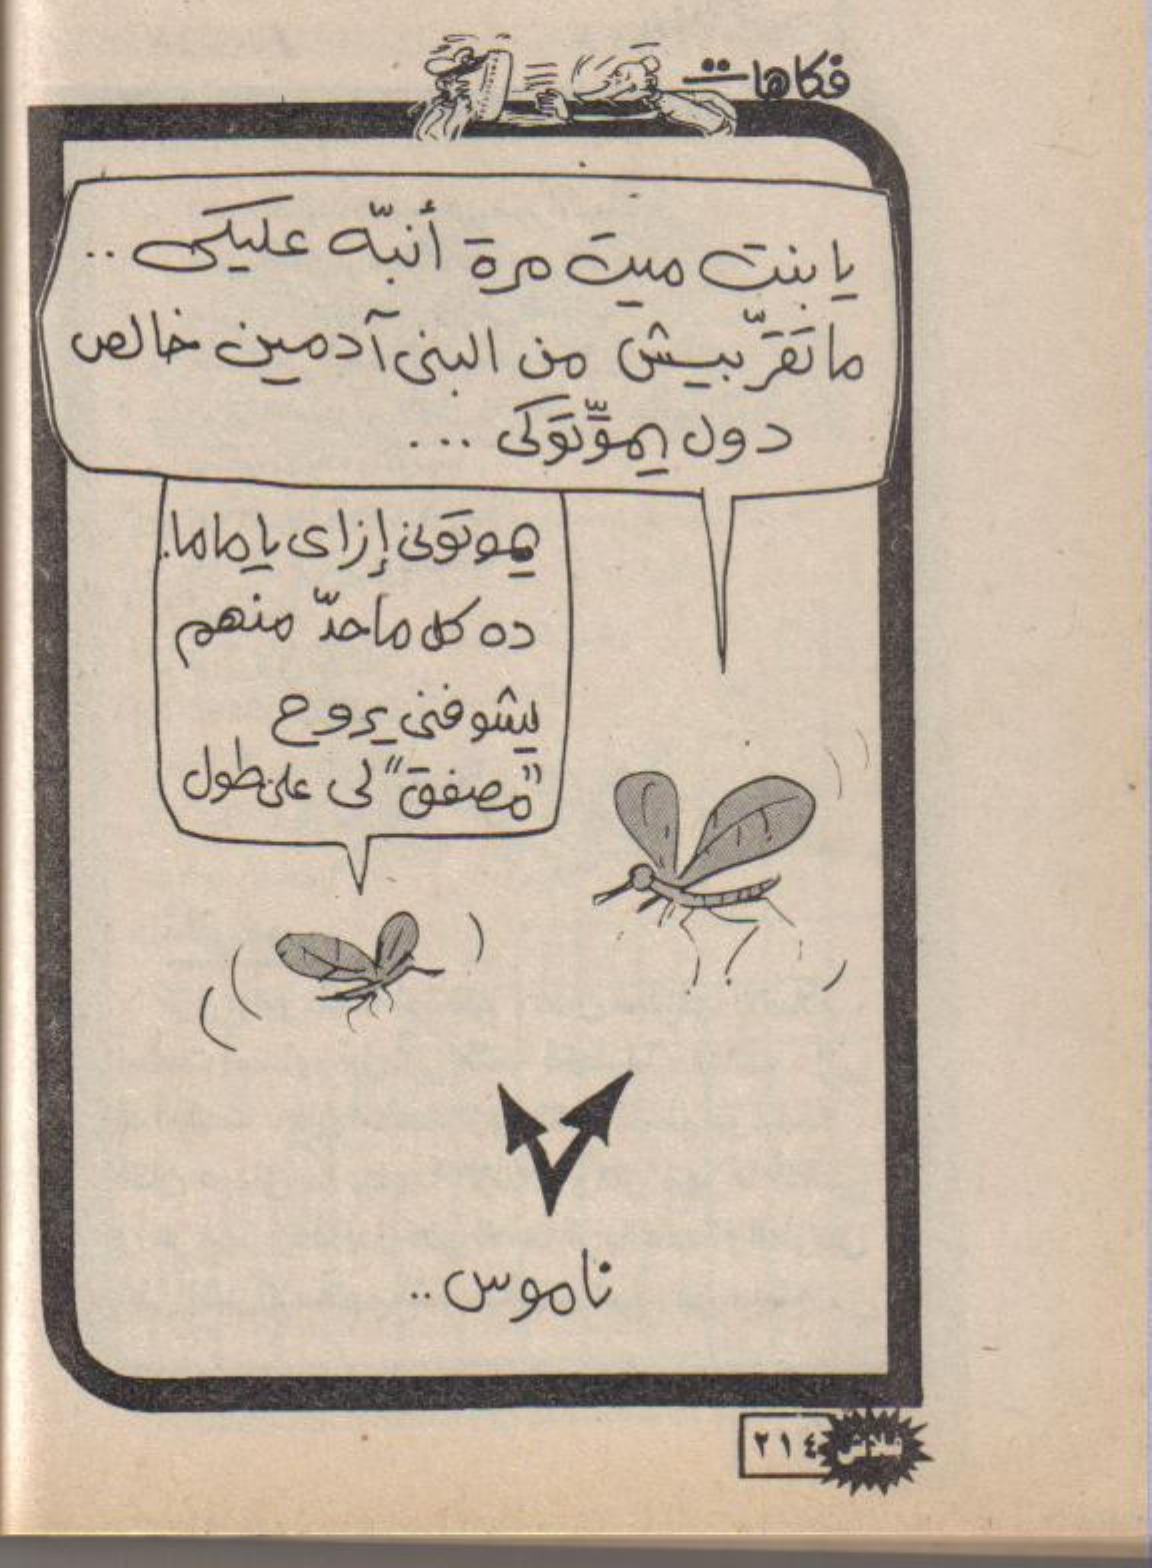 فكاهات
يا بنت ميت مرة أنبّه عليكى ..
ما تقرّبيش من البنى آدمين خالص
دول يموّتوكى ...
يموتونى إزاى يا ماما.
ده كل ما حدّ منهم
يشوفنى يروح
"مصفق" لى على طول
ناموس ..
٢١٤